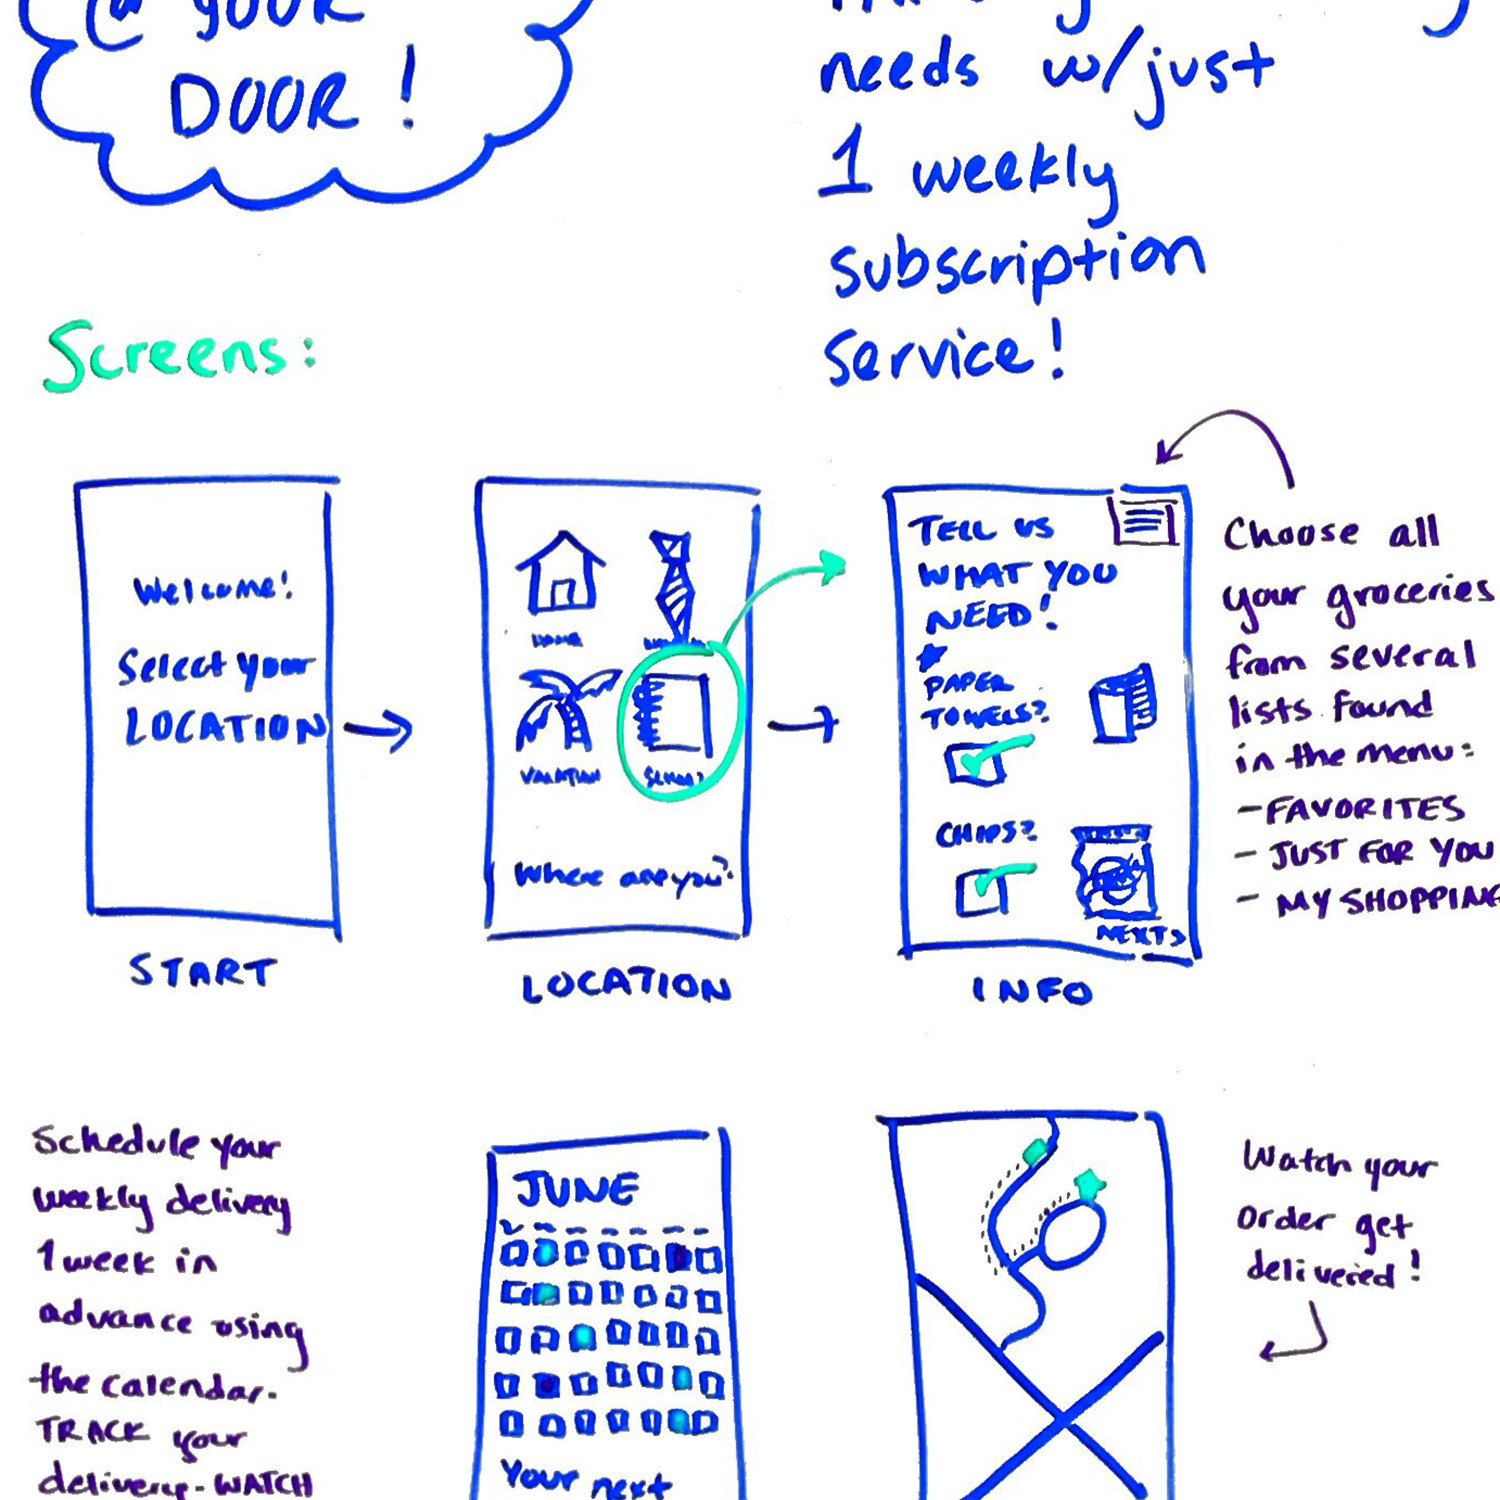 @ your
DOOR!
needs w/just
1 weekly
subscription
service!
Screens:
Welcome!
Select your
LOCATION
START
HOME
VACATION
SCHOOL
Where are you?
LOCATION
TELL US
WHAT YOU
NEED!
PAPER
TOWELS?
CHIPS?
NEXT>
INFO
Choose all
your groceries
from several
lists found
in the menu:
- FAVORITES
- JUST FOR YOU
- MY SHOPPING
Schedule your
weekly delivery
1 week in
advance using
the calendar.
TRACK your
delivery - WATCH
JUNE
Your next
Watch your
order get
delivered!